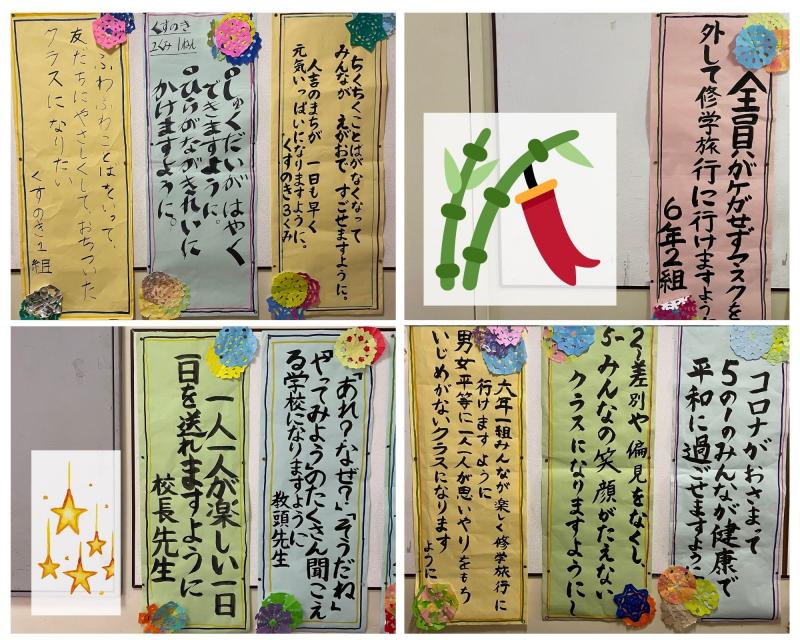 ちくちくことばがなくなって
みんなが えがおで すごせますように。
人吉のまちが 一日も早く
元気いっぱいになりますように。
くすのき3くみ
くすのき
2くみ 1ねん
○しゅくだいが はやく
できますように。
○ひらがながきれいに
かけますように。
ふわふわことばをいって、
友だちにやさしくして、おちついた
クラスになりたい
くすのき1組
全員がケガせずマスクを
外して修学旅行に行けますよう
6年2組
「あれ?なぜ?」「そうだね」
「やってみよう」のたくさん聞こえ
る学校になりますように
教頭先生
一人一人が楽しい一日
一日を送れますように
校長先生
コロナがおさまって
5の1のみんなが健康で
平和に過ごせますよう
2〜差別や偏見をなくし、
5-みんなの笑顔がたえない
クラスになりますように〜
六年一組みんなが楽しく修学旅行に
行けますように
男女平等に一人一人が思いやりをもち
いじめがないクラスになります
ように